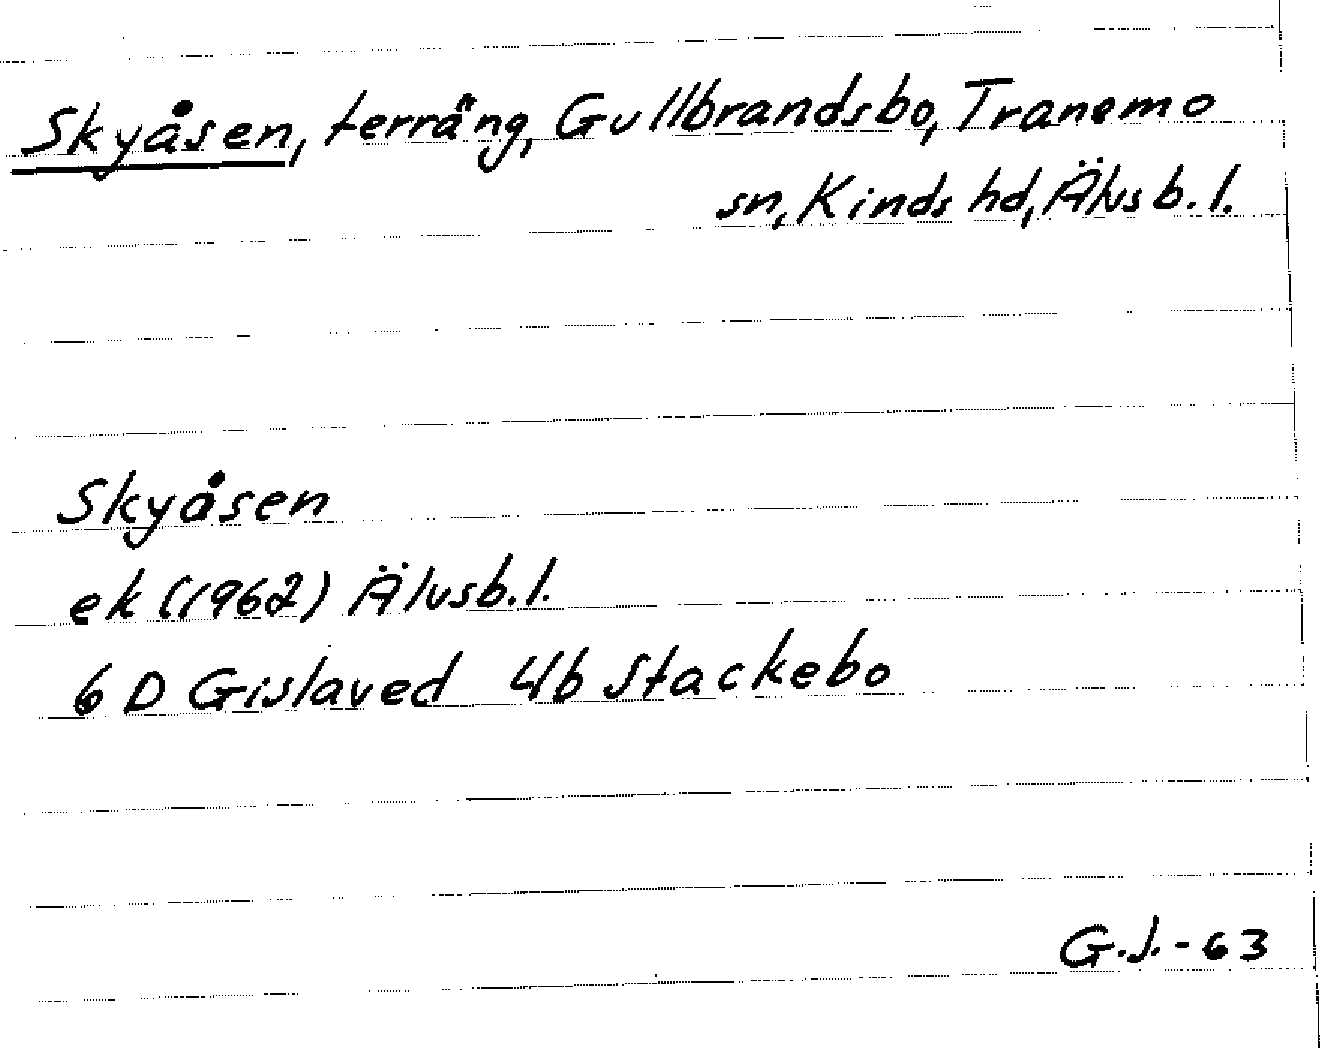 Skyåsen, terräng, Gullbrandsbo, Tranemo
sn, Kinds hd, Älvsb. l.
Skyåsen
ek (1962) Älvsb. l.
6 D Gislaved 4b Stackebo
G.J.-63